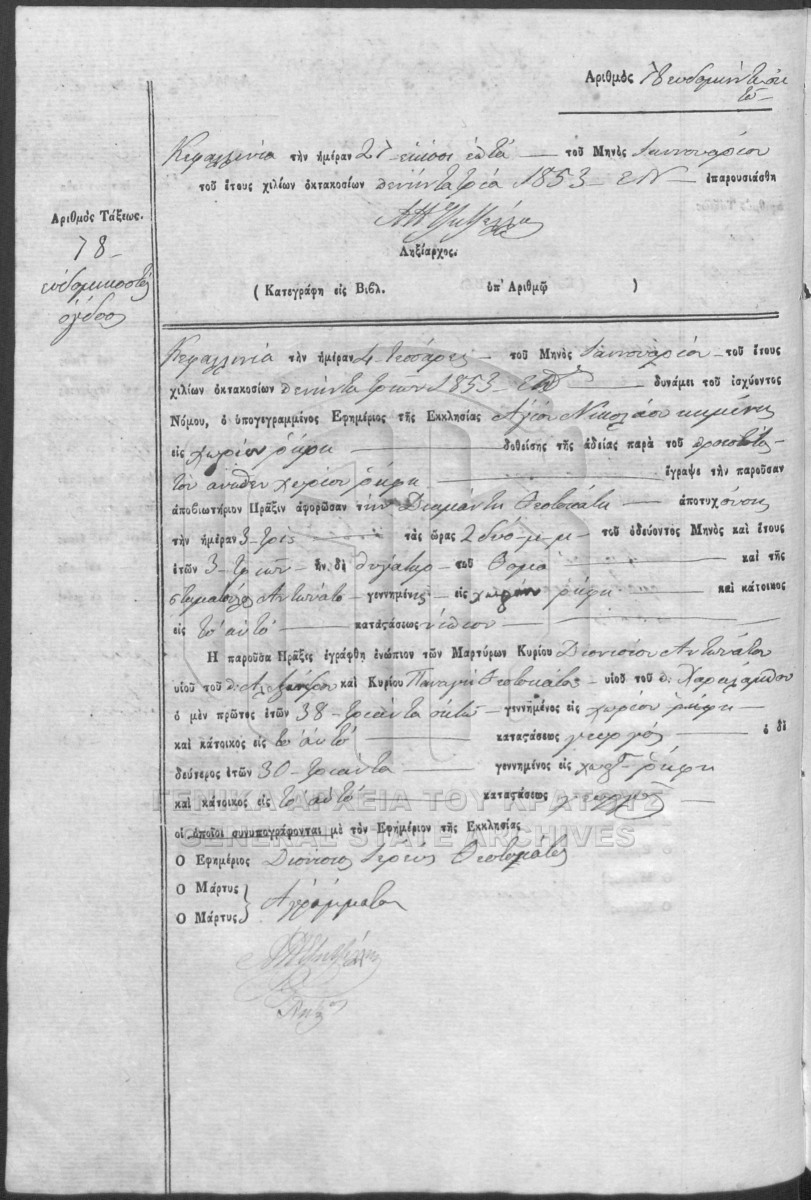 Αριθμός 78 ευδομήντα οκ
τό
Κεφαλληνία τὴν ἡμέραν 27 - είκοσι επτά — τοῦ Μηνὸς Ιαννουαρίου
τοῦ ἔτους χιλίων ὀκτακοσίων πενήντα τρία 1853 - Ε.Ν — ἐπαρουσιάσθη
Ληξίαρχος.
( Κατεγράφη εἰς Βιβλ. ὑπ' Ἀριθμῷ )
Αριθμὸς Τάξεως.
78 -
ευδομηκοστός
όγδοος
Κεφαλληνία τὴν ἡμέραν 4 τεσσάρες - τοῦ Μηνὸς Ιαννουαρίου - τοῦ ἔτους
χιλίων ὀκτακοσίων πενήντα τριών 1853 - — δυνάμει τοῦ ἰσχύοντος
Νόμου, ὁ ὑπογεγραμμένος Ἐφημέριος τῆς Ἐκκλησίας Αγίου Νικολάου κημένης
εἰς χωρίον ρήφη — δοθείσης τῆς ἀδείας παρὰ τοῦ προεστότος
του άνωθεν χωρίου ρήφη — ἔγραψε τὴν παροῦσαν
ἀποβιωτήριον Πρᾶξιν ἀφορῶσαν τὴν Διαμάντη Θεοτοκάτη — ἀποτυχόυσης
τὴν ἡμέραν 3 - τρίς — τὰς ὥρας 2 δύο - μ.μ - τοῦ ὁδεύοντος Μηνὸς καὶ ἔτους
ἐτῶν 3 - τριών - ἦν δὲ θυγάτηρ - τοῦ Θομά — καὶ τῆς
σταματούλας Αντωνάτο - γεννημένης - εἰς χωρίον ρήφη — καὶ κάτοικος
εἰς το αυτό — καταστάσεως νήπιον —
Ἡ παροῦσα Πρᾶξις ἐγράφθη ἐνώπιον τῶν Μαρτύρων Κυρίου Διονισίου Αντωνάτου
υἱοῦ τοῦ π. Αλεξάνδρου καὶ Κυρίου Παναγή Θεοτοκάτος - υἱοῦ τοῦ π. Χαραλάμπου
ὁ μὲν πρῶτος ἐτῶν 38 - τριάντα οκτώ - γεννημένος εἰς χωρίον ρήφη -
καὶ κάτοικος εἰς το αυτό — καταστάσεως γεοργός — ὁ δὲ
δεύτερος ἐτῶν 30 - τριάντα — γεννημένος εἰς χωρίον ρήφη
καὶ κάτοικος εἰς το αυτό — καταστάσεως γεοργός
οἱ ὁποῖοι συνυπογράφονται μὲ τὸν Ἐφημέριον τῆς Ἐκκλησίας
Ὁ Ἐφημέριος Διονίσιος Ιερεύς Θεοτοκάτος
Ὁ Μάρτυς
Ὁ Μάρτυς } Αγράμματοι
ΓΕΝΙΚΑ ΑΡΧΕΙΑ ΤΟΥ ΚΡΑΤΟΥΣ
GENERAL STATE ARCHIVES